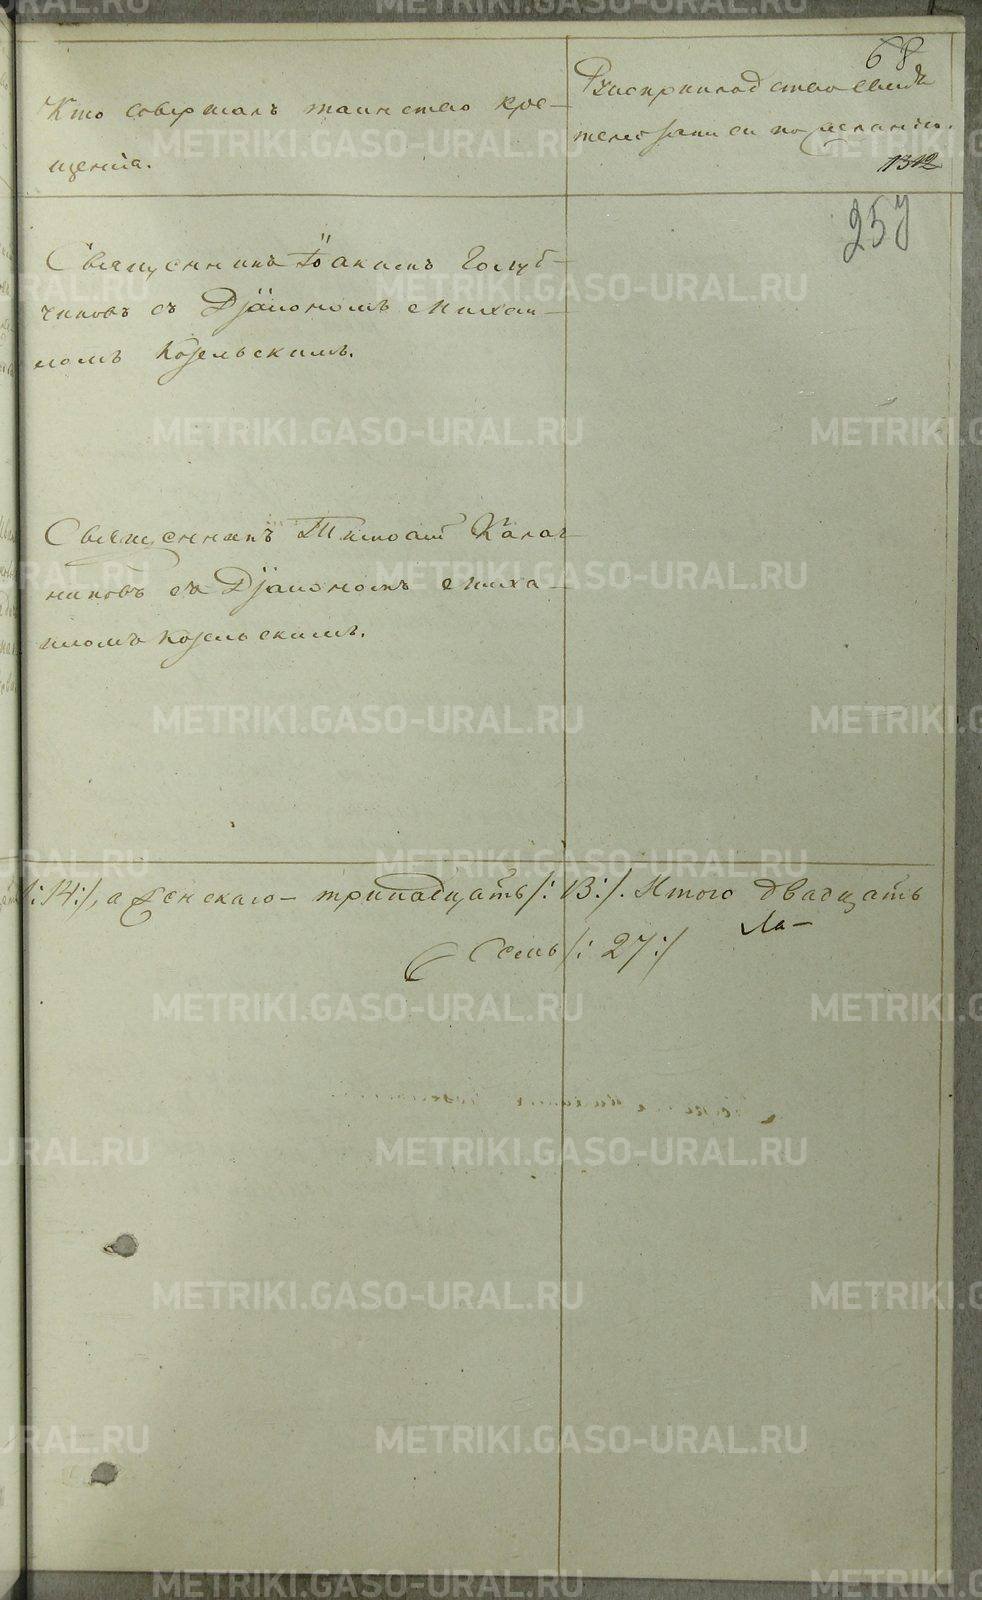 68
Кто совершалъ таинство кре-
щенія.
Рукоприкладство свидѣ
телей записи по желанію.
1312
257
Священникъ Іоакимъ Голуб-
чиковъ съ Діакономъ Михаи-
ломъ Козельскимъ.
Священникъ Тимофей Калаш
никовъ съ Діакономъ Миха-
иломъ Козельскимъ.
/:14:/, а женскаго - тринадцать /:13:/. Итого двадцать
семь /:27:/
METRIKI.GASO-URAL.RU